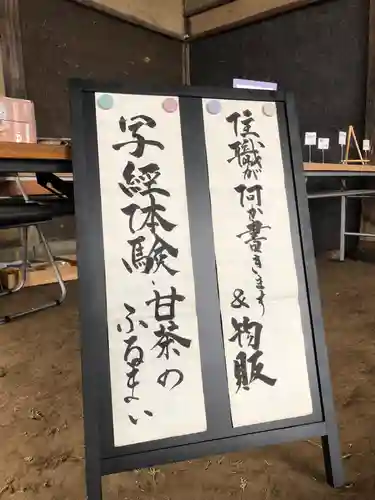 住職が何か書きます&物販
写経体験・甘茶のふるまい